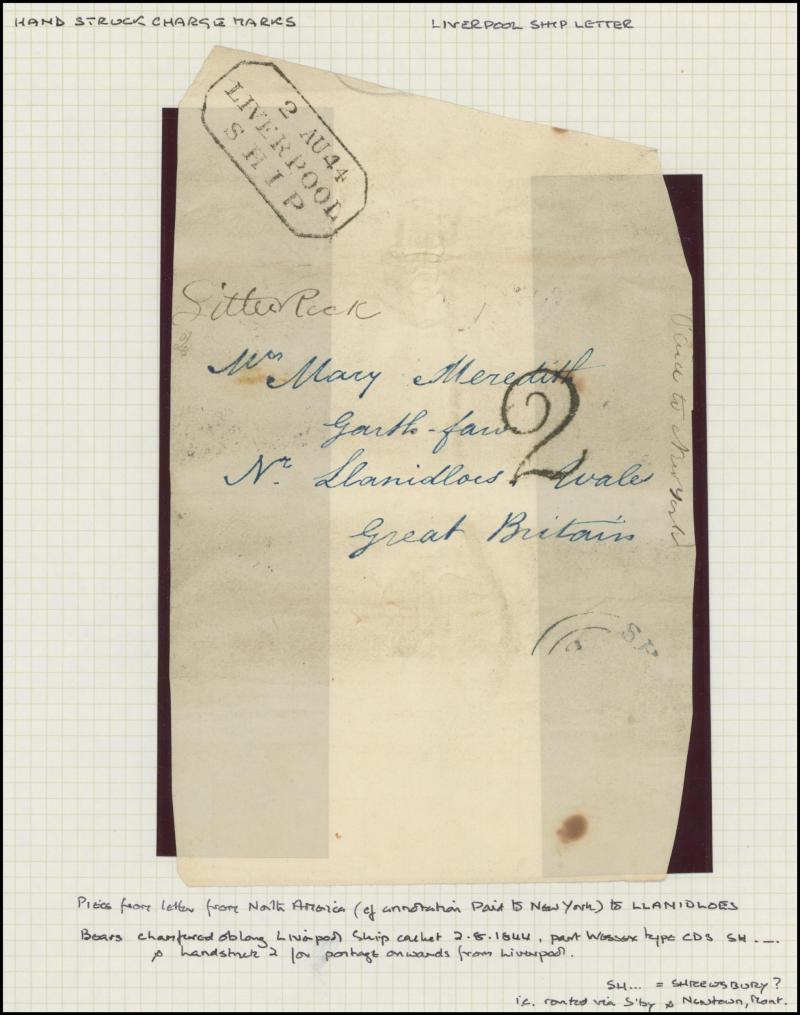 HAND STRUCK CHARGE MARKS
LIVERPOOL SHIP LETTER
2 AU 44
LIVERPOOL
SHIP
Little Rock
Mrs Mary Meredith
2
Garth-fawr
Nr. Llanidloes. Wales
Great Britain
Paid to New York
SH
Piece from letter from North America (cf annotation Paid to New York) to LLANIDLOES
Bears chamfered oblong Liverpool Ship cachet 2.8.1844, part Wessex type CDS SH....
& handstruck 2 for postage onwards from Liverpool.
SH... = SHREWSBURY?
i.e. routed via S'by & Newtown, Mont.